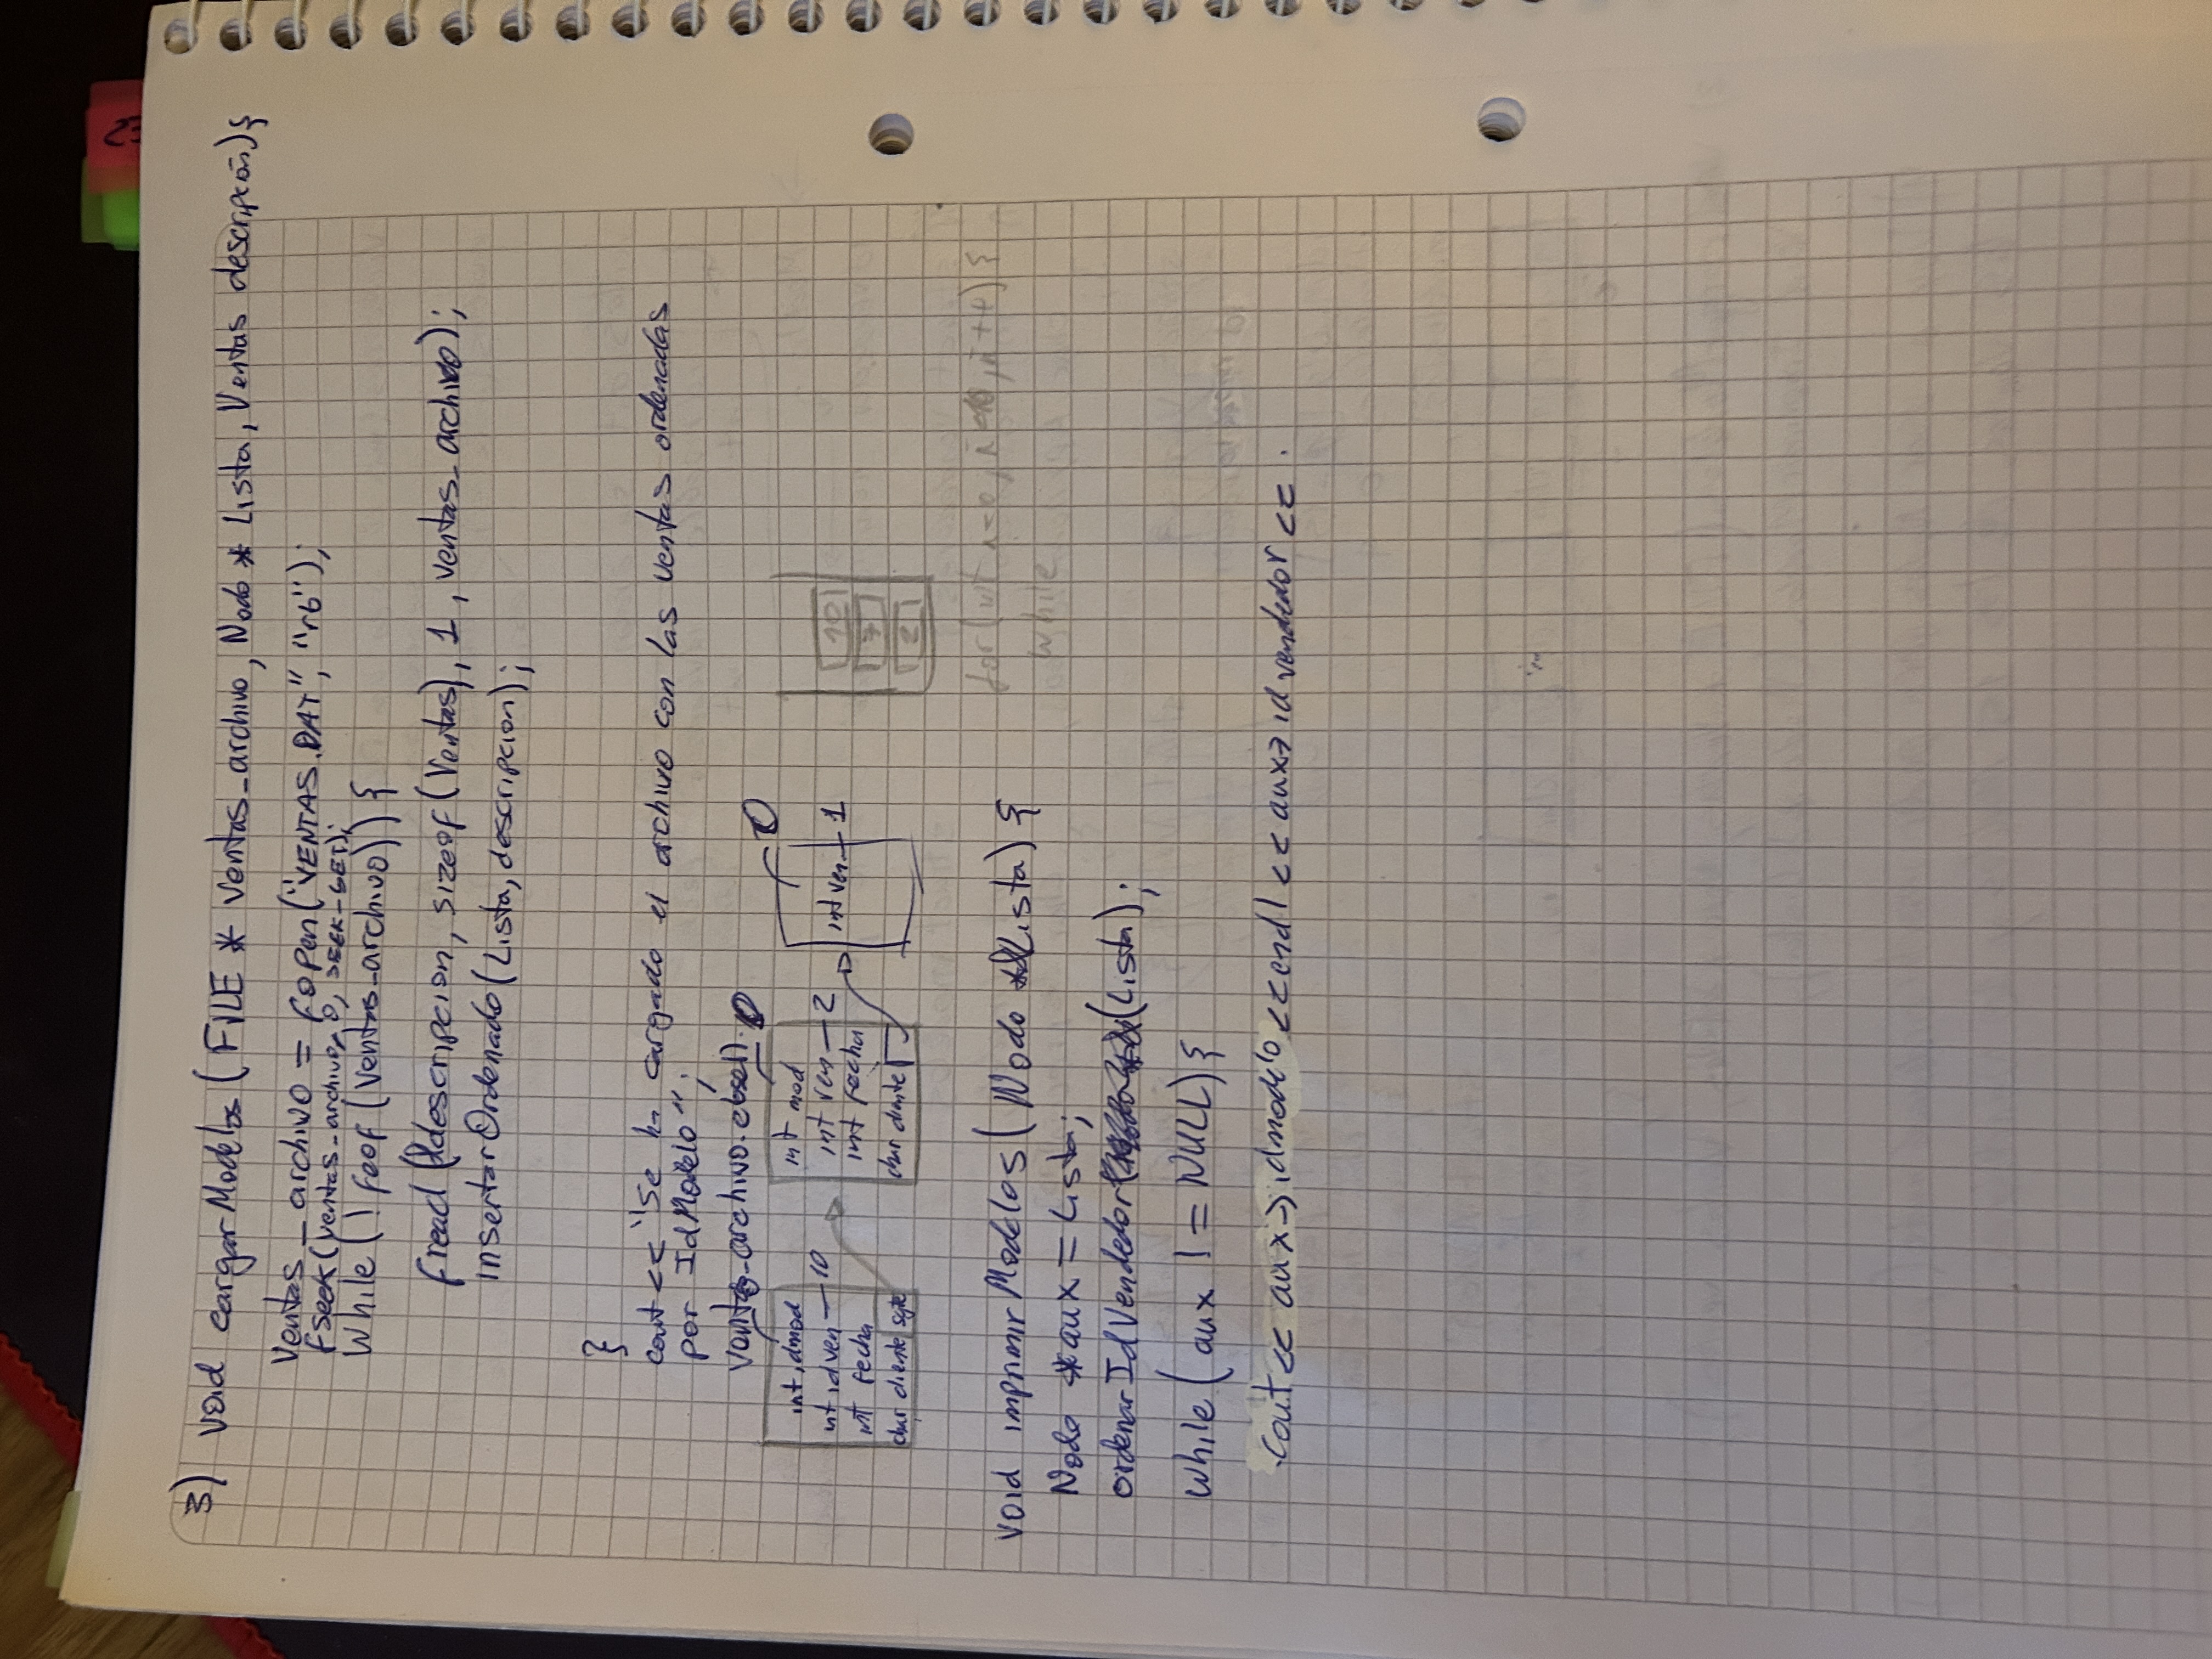 3) void cargarModelos (FILE * ventas_archivo, Nodo * Lista, Ventas descripción){
ventas_archivo = fopen("VENTAS.DAT", "rb");
fseek(ventas_archivo, 0, SEEK-SET);
While (!feof (ventas_archivo)) {
fread (&descripcion, sizeof (Ventas), 1, ventas_archivo);
insertarOrdenado (Lista, descripcion);
}
cout << "Se ha cargado el archivo con las ventas ordenadas
por IdModelo";
ventas_archivo.
0
0
int idmod
int idven — 10
int fecha
char cliente sgte
int mod
int ven — 2
int fecha
char cliente
int ven — 1
10
7
2
for (int i=0, i<10, i++) {
while
void imprimirModelos (Nodo *&Lista) {
Nodo *aux = Lista;
ordenarIdVendedor (Lista);
while (aux != NULL) {
cout << aux-> idmodelo << endl << aux-> idvendedor << .